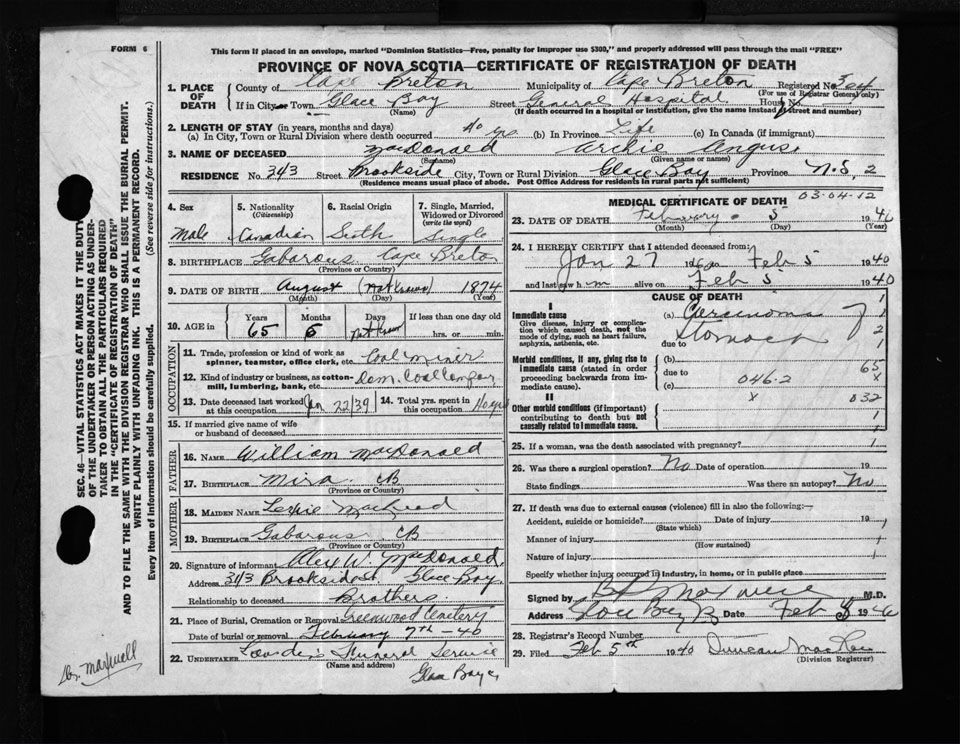 FORM 6
This form if placed in an envelope, marked "Dominion Statistics—Free, penalty for improper use $300," and properly addressed will pass through the mail "FREE"
PROVINCE OF NOVA SCOTIA—CERTIFICATE OF REGISTRATION OF DEATH
1. PLACE OF DEATH County of Cape Breton Municipality of Cape Breton Registered No. 304
(For use of Registrar General only)
If in City or Town Glace Bay Street General Hospital House No.
(Name) (If death occurred in a hospital or institution, give the name instead of street and number)
2. LENGTH OF STAY (in years, months and days)
(a) In City, Town or Rural Division where death occurred 40 yrs (b) In Province Life (c) In Canada (if immigrant)
3. NAME OF DECEASED MacDonald Archie Angus
(Surname) (Given name or names)
RESIDENCE No. 343 Street Brookside City, Town or Rural Division Glace Bay Province N.S. 2
(Residence means usual place of abode. Post Office Address for residents in rural parts not sufficient)
03-04-12
4. Sex Male
5. Nationality (Citizenship) Canadian
6. Racial Origin Scotch
7. Single, Married, Widowed or Divorced (write the word) Single
8. BIRTHPLACE Gabarous Cape Breton
(Province or Country)
9. DATE OF BIRTH August (Not Known) 1874
(Month) (Day) (Year)
10. AGE in Years 65 Months 6 Days Not Known If less than one day old hrs. or min.
OCCUPATION
11. Trade, profession or kind of work as spinner, teamster, office clerk, etc. Coal Miner
12. Kind of industry or business, as cotton-mill, lumbering, bank, etc. Dom. Coal Company
13. Date deceased last worked at this occupation Jan 22/39
14. Total yrs. spent in this occupation 40 yrs
15. If married give name of wife or husband of deceased
FATHER
16. NAME William MacDonald
17. BIRTHPLACE Mira CB
(Province or Country)
MOTHER
18. MAIDEN NAME MacLeod
19. BIRTHPLACE Gabarous CB
(Province or Country)
20. Signature of informant Alex W. MacDonald
Address 343 Brookside St. Glace Bay
Relationship to deceased Brothers
21. Place of Burial, Cremation or Removal Greenwood Cemetery
Date of burial or removal February 7th - 40
22. UNDERTAKER Funeral Service
(Name and address)
Glace Bay
MEDICAL CERTIFICATE OF DEATH
23. DATE OF DEATH February 5 1940
(Month) (Day) (Year)
24. I HEREBY CERTIFY that I attended deceased from:
Jan 27 1940 to Feb 5 1940
and last saw h m alive on Feb 5 1940
CAUSE OF DEATH
I
Immediate cause
Give disease, injury or complication which caused death, not the mode of dying, such as heart failure, asphyxia, asthenia, etc.
(a) Carcinoma Stomach
due to
Morbid conditions, if any, giving rise to immediate cause (stated in order proceeding backwards from immediate cause).
(b)
due to
(c) 046-2
II
Other morbid conditions (if important) contributing to death but not causally related to immediate cause.
1
7
2
1
65
x
x 032
1
25. If a woman, was the death associated with pregnancy? 1
26. Was there a surgical operation? No Date of operation 19
State findings Was there an autopsy? No
27. If death was due to external causes (violence) fill in also the following:—
Accident, suicide or homicide? Date of injury 19
(State which)
Manner of injury
(How sustained)
Nature of injury
Specify whether injury occurred in industry, in home, or in public place
Signed by M.D.
Address Glace Bay Date Feb 5 1940
28. Registrar's Record Number
29. Filed Feb 5th 1940 Duncan
(Division Registrar)
SEC. 46—VITAL STATISTICS ACT MAKES IT THE DUTY
OF THE UNDERTAKER OR PERSON ACTING AS UNDERTAKER TO OBTAIN ALL THE PARTICULARS REQUIRED
IN THE "CERTIFICATE OF REGISTRATION OF DEATH"
AND TO FILE THE SAME WITH THE DIVISION REGISTRAR WHO SHALL ISSUE THE BURIAL PERMIT.
WRITE PLAINLY WITH UNFADING INK. THIS IS A PERMANENT RECORD.
Every item of information should be carefully supplied. (See reverse side for instructions.)
Dr. Maxwell